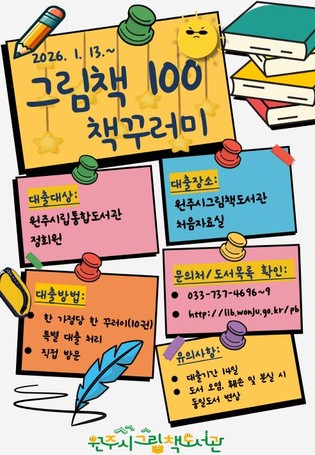 2026. 1. 13.~
그림책 100
책꾸러미
대출대상:
원주시립통합도서관
정회원
대출장소:
원주시그림책도서관
처음자료실
대출방법:
한 가정당 한 꾸러미(10권)
특별 대출 처리
직접 방문
문의처/도서목록 확인:
033-737-4696~9
http://lib.wonju.go.kr/pb
유의사항:
대출기간 14일
도서 오염, 훼손 및 분실 시
동일도서 변상
원주시그림책도서관